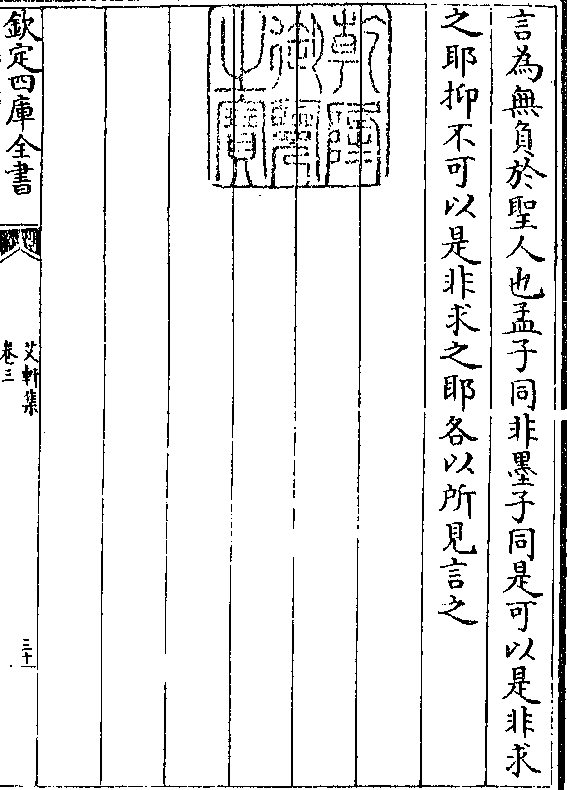 言為無負於聖人也孟子同非墨子同是可以是非求
之耶抑不可以是非求之耶各以所見言之
乾隆
御覽
之寶
欽定四庫全書
艾軒集
卷三
三十